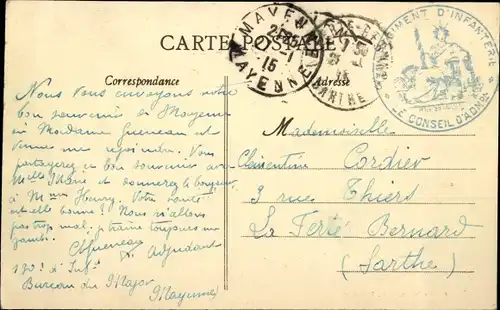 CARTE POSTALE
MAYENNE
MAYENNE
15
SARTHE
REGIMENT D'INFANTERIE
LE CONSEIL D'ADM
Correspondance
Adresse
Nous vous envoyons notre
bon souvenir de Mayenne
Madame et
me rejoindre. Vous
partagerez ce bon souvenir avec
Melle et donnerez le bonjour
à Mme Henry. Votre santé
est-elle bonne? Nous n'allons
pas trop mal. traîne toujours ma
jambe.
Adjudant
130e d'Infie
Bureau du Major
Mayenne
Mademoiselle
Clémentine Cordier
3 rue Thiers
La Ferté Bernard
(Sarthe)